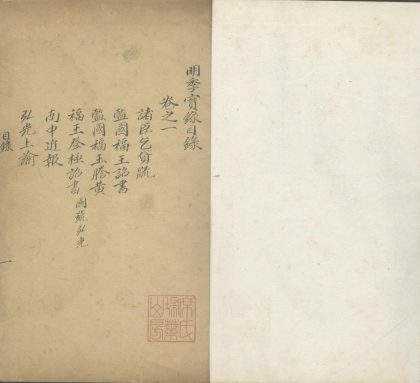 明季實錄目錄
卷之一
諸臣乞貸疏
監國福王詔書
監國福王謄黃
福王登極詔書 國號弘光
南中近報
弘光上諭
目錄
一